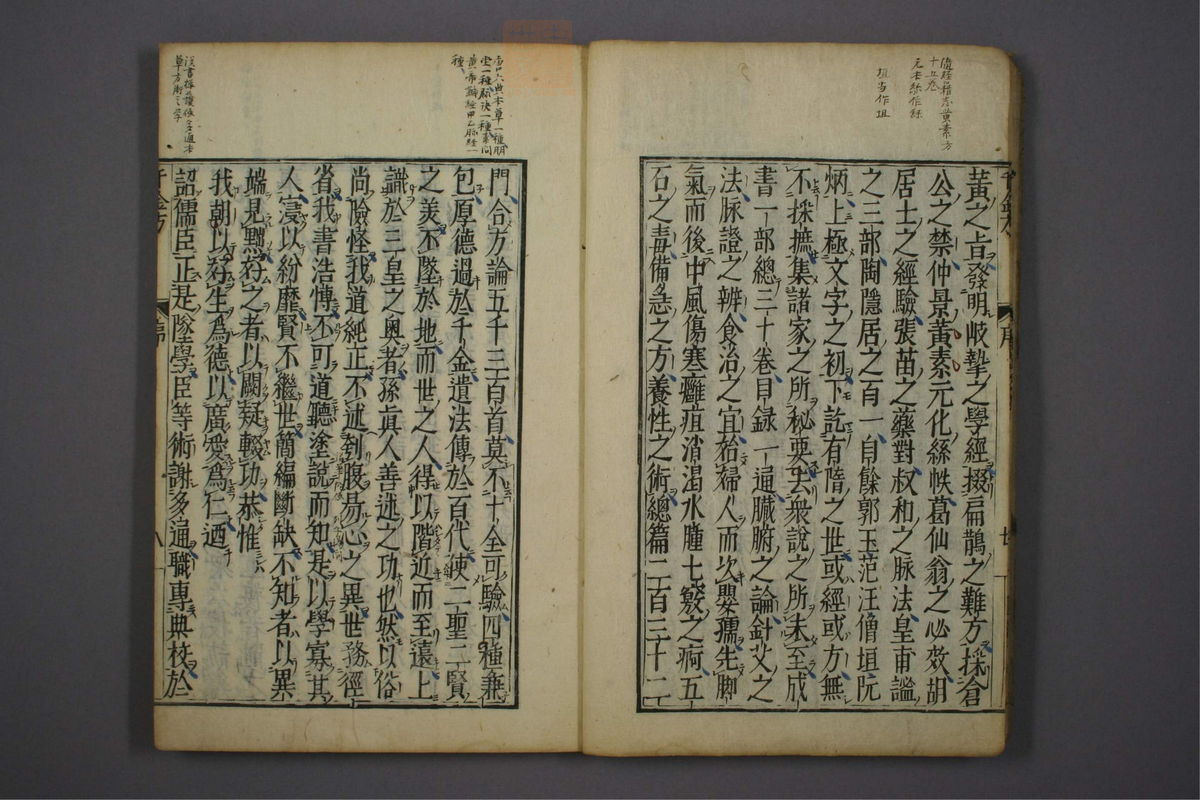 黃之旨發明岐摯之學經掇扁鵲之難方採倉
公之禁仲景黃素元化綠帙葛仙翁之必效胡
居士之經驗張苗之藥對叔和之脉法皇甫謐
之三部陶隱居之百一自餘郭玉范汪僧垣阮
炳上極文字之初下訖有隋之世或經或方無
不採摭集諸家之所秘要去衆說之所未至成
書一部總三十卷目録一通臓腑之論針艾之
法脉證之辨食治之宜始婦人而次嬰孺先脚
氣而後中風傷寒癰疽消渴水腫七竅之痾五
石之毒備急之方養性之術總篇二百三十二
門合方論五千三百首莫不十全可驗四種兼
包厚德過於千金遺法傳於百代使二聖二賢
之美不墜於地而世之人得以階近而至遠上
識於三皇之奥者孫眞人善述之功也然以俗
尚險怪我道純正不述刳腹易心之異世務徑
省我書浩愽不可道聽塗說而知是以學寡其
人寖以紛靡賢不繼世簡編斷缺不知者以異
端見黜好之者以闕疑輟功恭惟
我朝以好生爲德以廣愛爲仁迺
詔儒臣正是墜學臣等術謝多通職專典校於
千金方
序
八